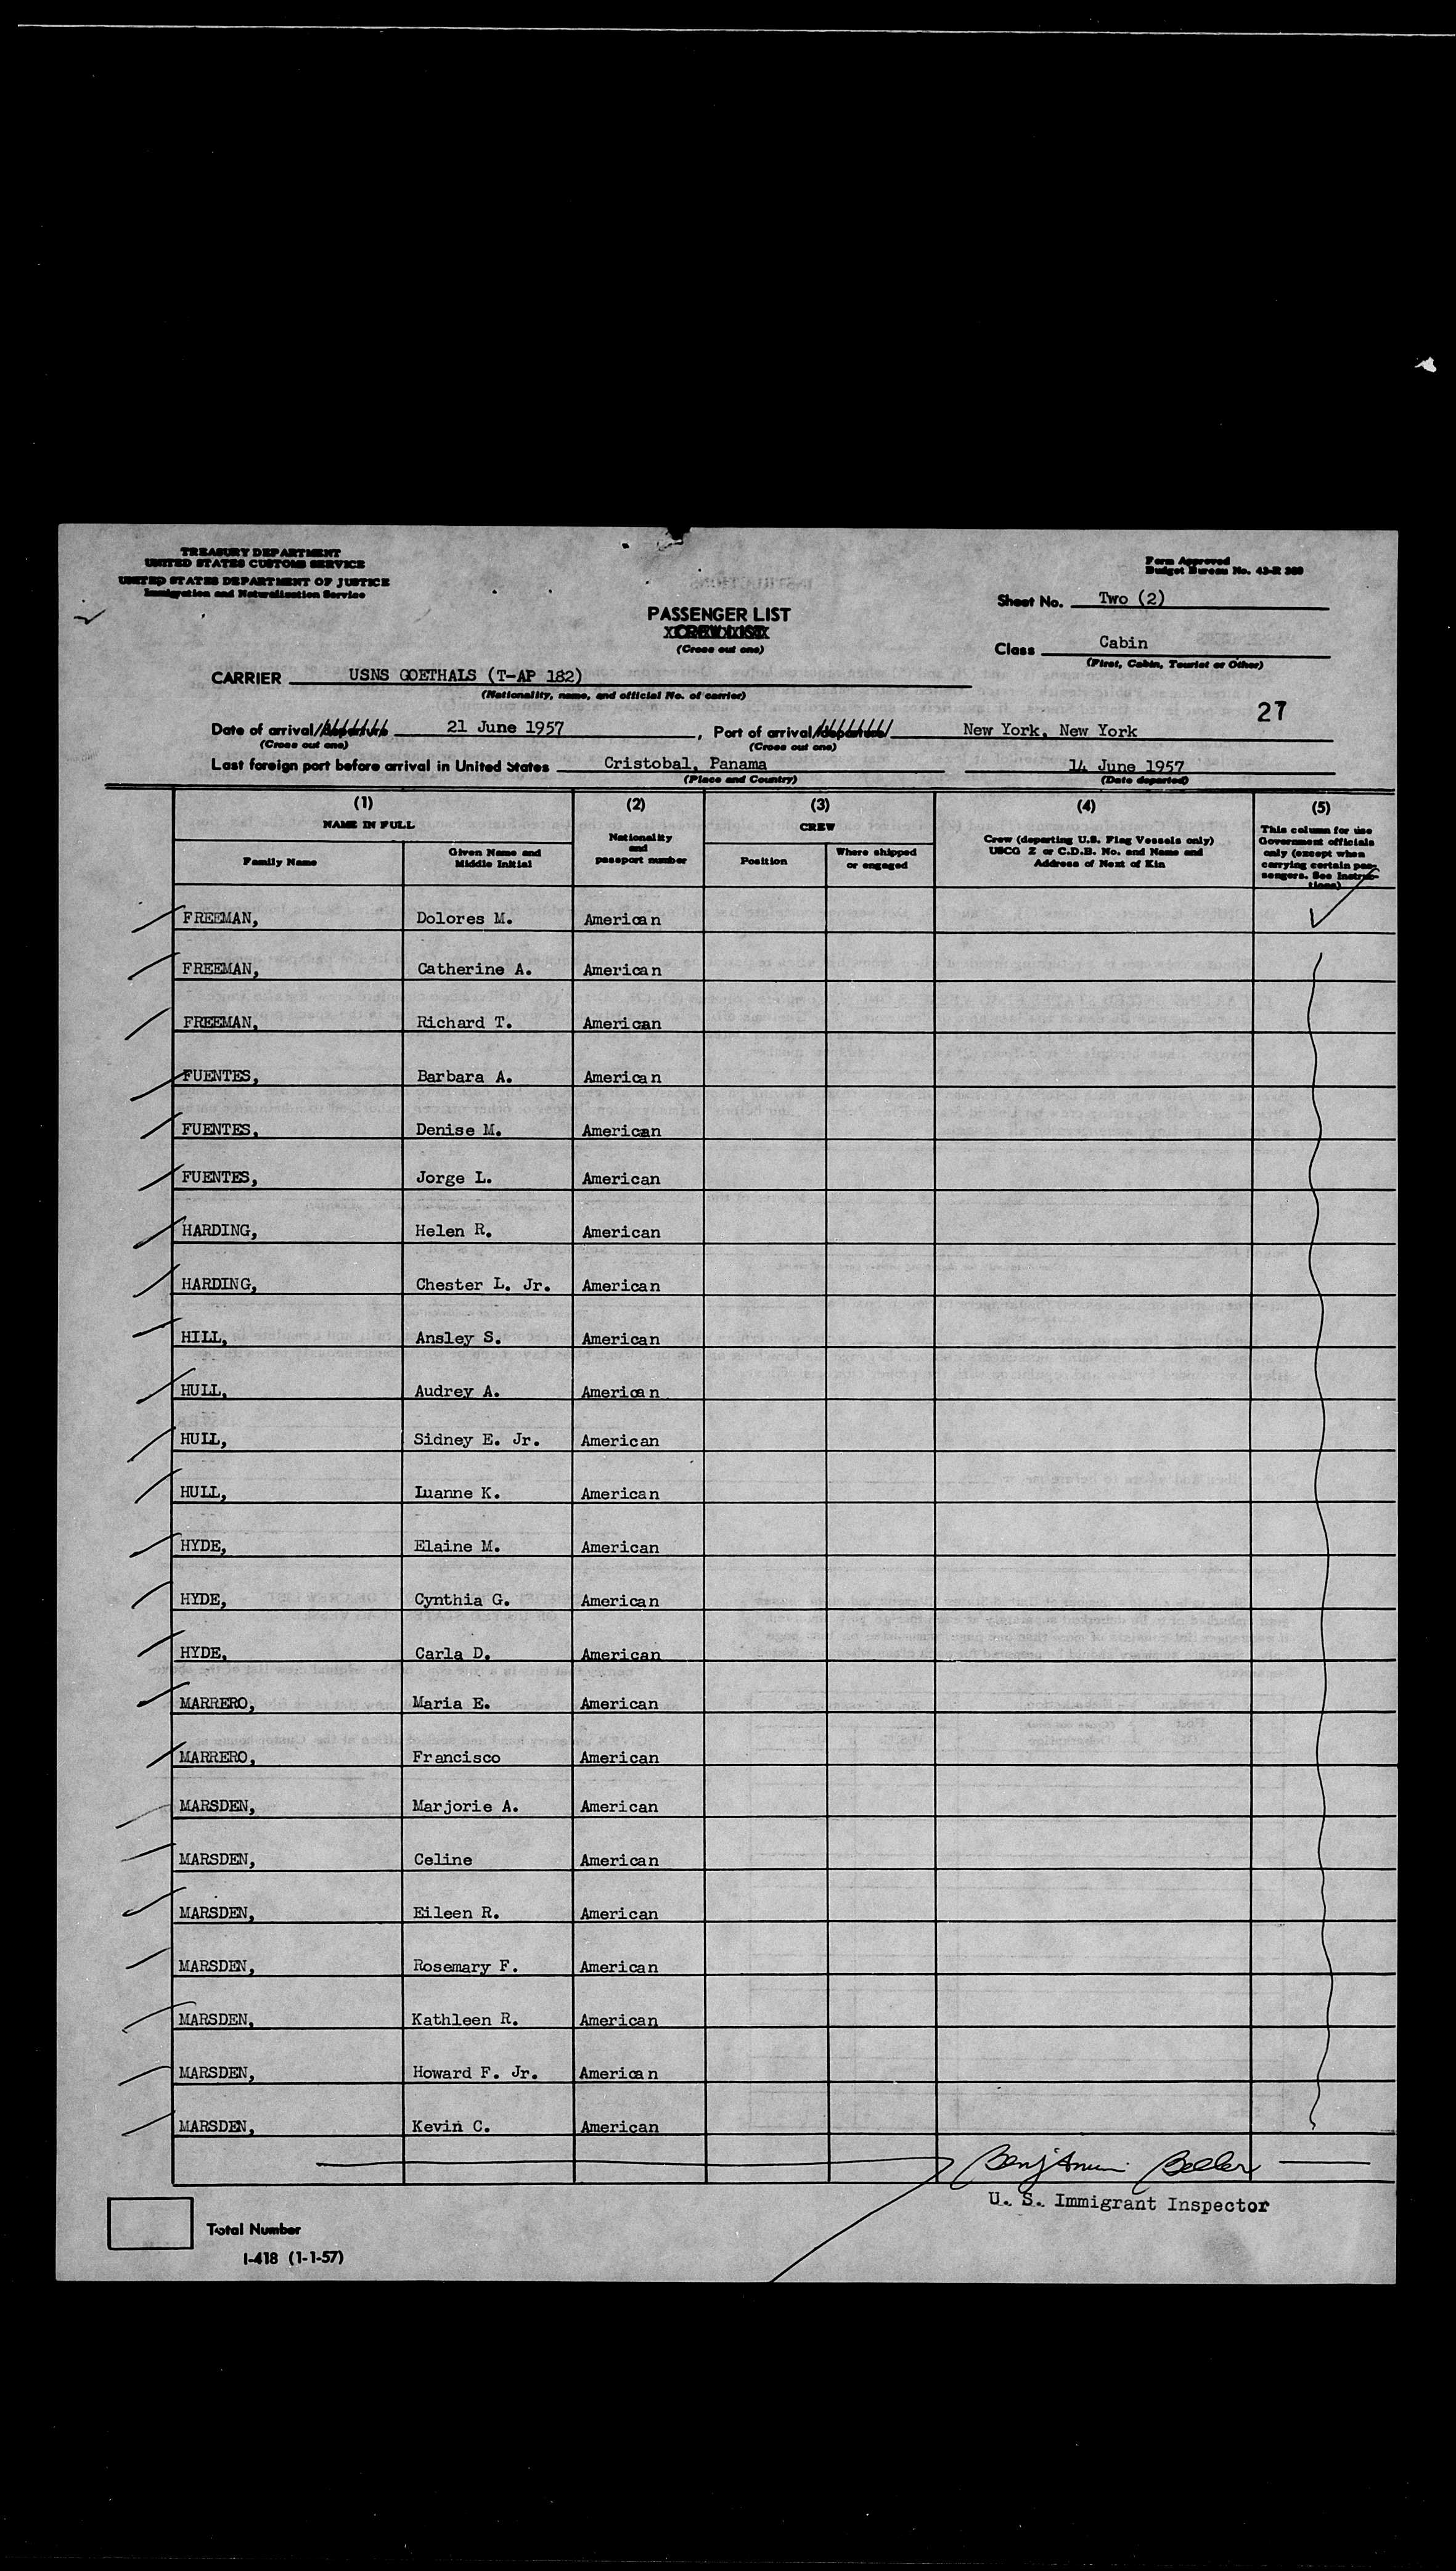 TREASURY DEPARTMENT
UNITED STATES CUSTOMS SERVICE
UNITED STATES DEPARTMENT OF JUSTICE
Immigration and Naturalization Service
Form Approved
Budget Bureau No. 43-R 369
PASSENGER LIST
CREW LIST
(Cross out one)
Sheet No. Two (2)
Class Cabin
(First, Cabin, Tourist or Other)
CARRIER USNS GOETHALS (T-AP 182)
(Nationality, name, and official No. of carrier)
27
Date of arrival/departure 21 June 1957, Port of arrival/departure New York, New York
(Cross out one) (Cross out one)
Last foreign port before arrival in United States Cristobal, Panama 14 June 1957
(Place and Country) (Date departed)
(1) (2) (3) (4) (5)
NAME IN FULL
Family Name
Given Name and Middle Initial
Nationality and passport number
CREW
Position
Where shipped or engaged
Crew (departing U.S. Flag Vessels only)
USCG Z or C.D.B. No. and Name and
Address of Next of Kin
This column for use
Government officials
only (except when
carrying certain pas-
sengers. See Instruc-
tions)
FREEMAN, Dolores M. American
FREEMAN, Catherine A. American
FREEMAN, Richard T. American
FUENTES, Barbara A. American
FUENTES, Denise M. American
FUENTES, Jorge L. American
HARDING, Helen R. American
HARDING, Chester L. Jr. American
HILL, Ansley S. American
HULL, Audrey A. American
HULL, Sidney E. Jr. American
HULL, Luanne K. American
HYDE, Elaine M. American
HYDE, Cynthia G. American
HYDE, Carla D. American
MARRERO, Maria E. American
MARRERO, Francisco American
MARSDEN, Marjorie A. American
MARSDEN, Celine American
MARSDEN, Eileen R. American
MARSDEN, Rosemary F. American
MARSDEN, Kathleen R. American
MARSDEN, Howard F. Jr. American
MARSDEN, Kevin C. American
Benjamin Beller
U. S. Immigrant Inspector
Total Number
I-418 (1-1-57)